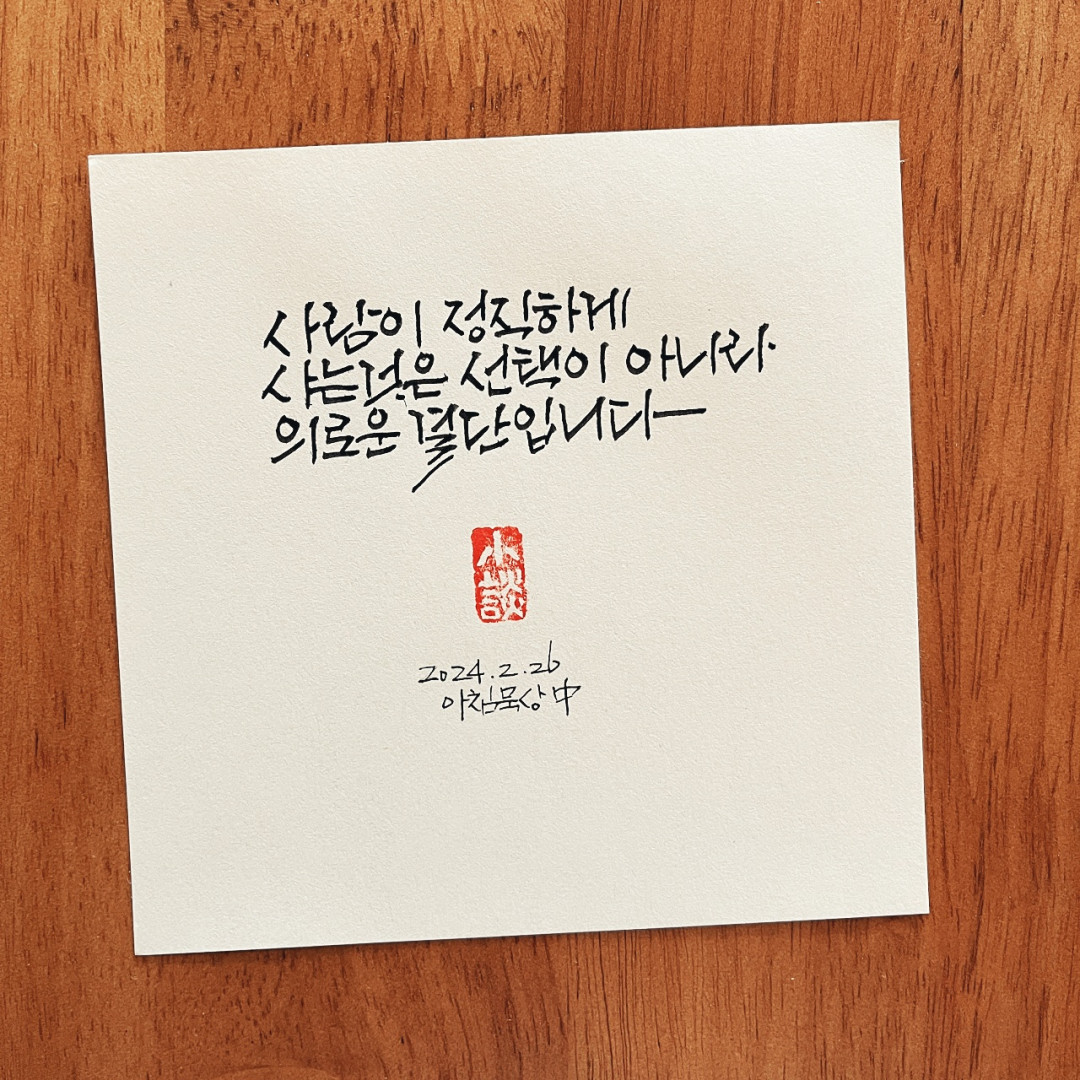 사람이 정직하게
사는것은 선택이 아니라
의로운 결단입니다
小談
2024.2.26
아침묵상 中